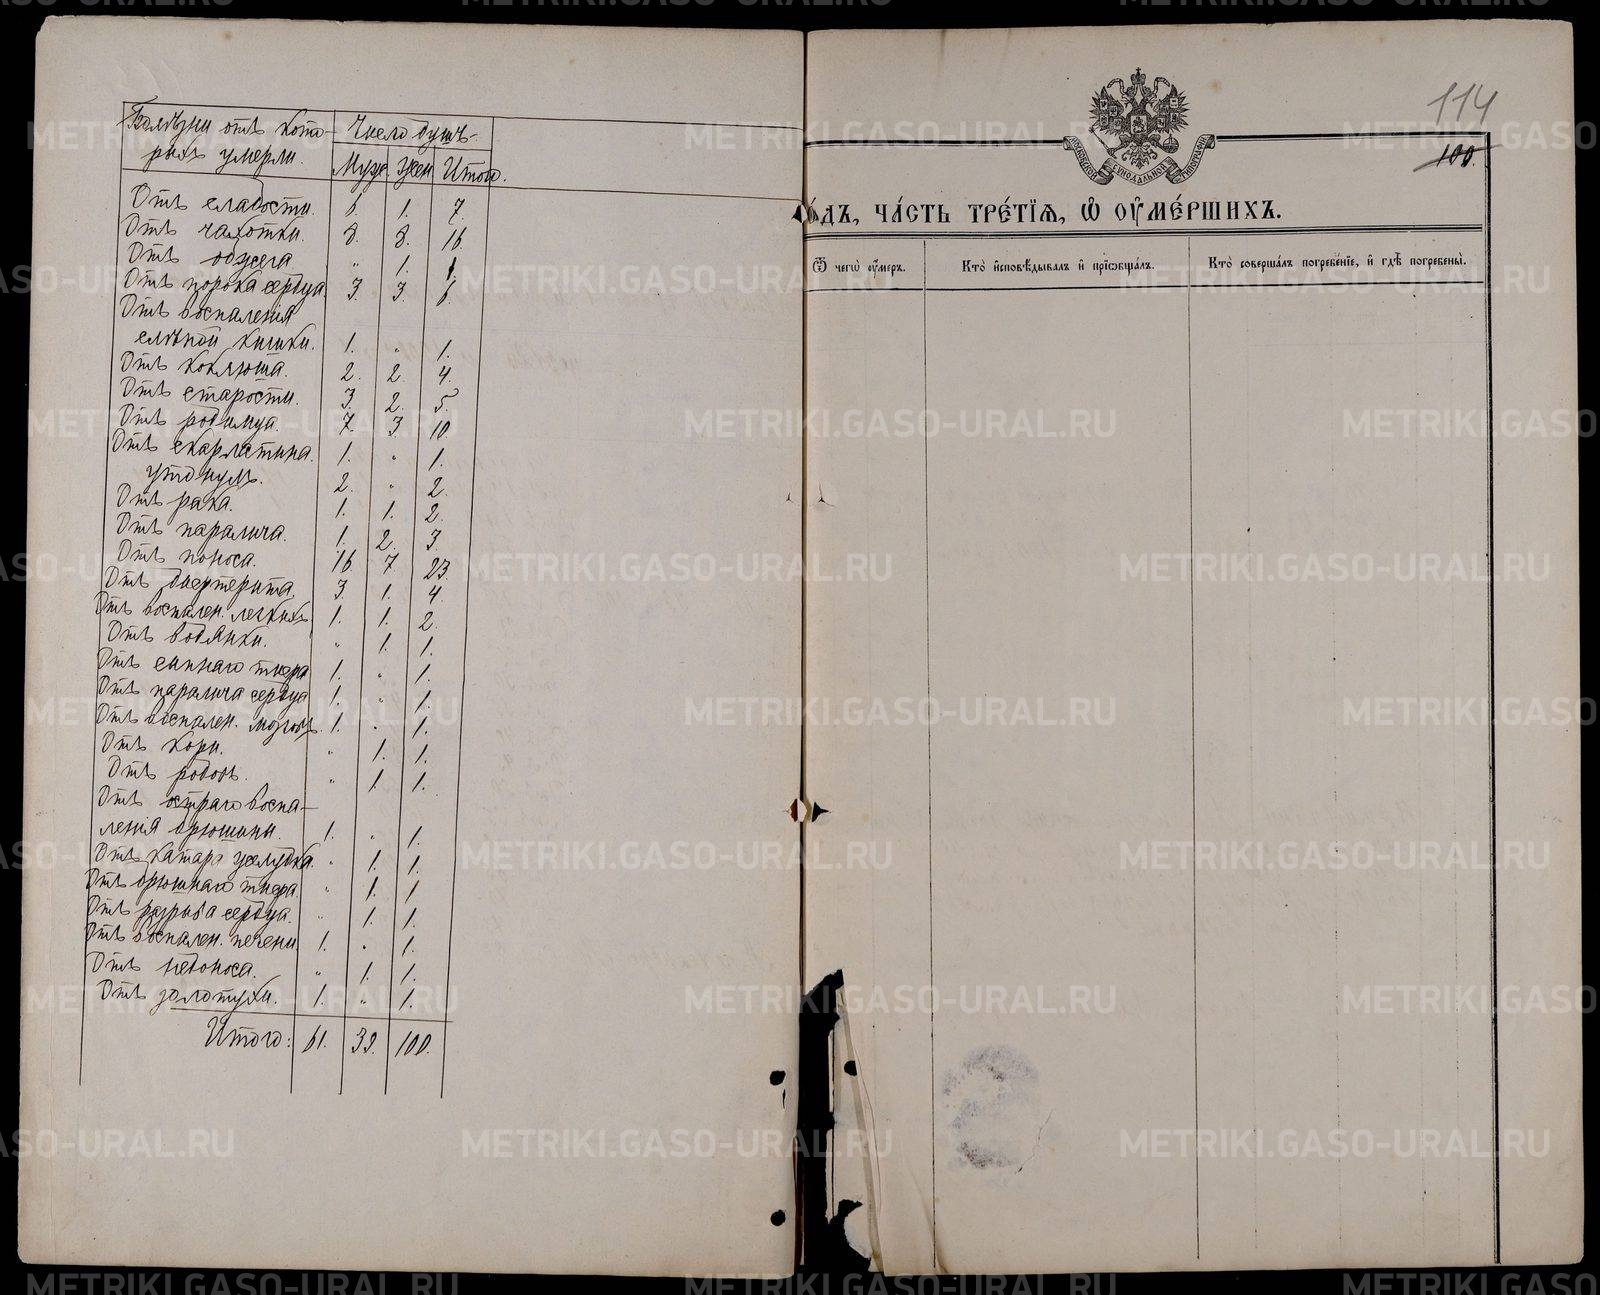 Болѣзни отъ кото-
рыхъ умерли.
Число душъ-
Муж. Жен. Итого.
Отъ слабости. 6. 1. 7.
Отъ чахотки. 8. 8. 16.
Отъ ожега " 1. 1.
Отъ порока сердца. 3. 3. 6.
Отъ воспаленія
слѣпой кишки. 1. " 1.
Отъ коклюша. 2. 2. 4.
Отъ старости. 3. 2. 5.
Отъ родимца. 7. 3. 10.
Отъ скарлатина. 1. " 1.
Утонулъ. 2. " 2.
Отъ рака. 1. 1. 2.
Отъ паралича. 1. 2. 3.
Отъ поноса. 16 7 23.
Отъ дифтерита. 3. 1. 4.
Отъ воспален. легкихъ 1. 1. 2.
Отъ водянки. " 1. 1.
Отъ сыпнаго тифа 1. " 1.
Отъ паралича сердца 1. " 1.
Отъ воспален. мозговъ. 1. " 1.
Отъ кори. " 1. 1.
Отъ родовъ. " 1. 1.
Отъ остраго воспа-
ленія брюшины. 1. " 1.
Отъ катара желудка. " 1. 1.
Отъ брюшнаго тифа. " 1. 1
Отъ разрыва сердца. " 1. 1.
Отъ воспален. печени. 1. " 1.
Отъ недоноса. " 1. 1.
Отъ золотухи. 1. " 1.
Итого: 61. 39. 100.
114
100.
МОСКОВСКОЙ СѴНОДАЛЬНОЙ ТИПОГРАФІИ
о́дъ, ча́сть тре́тїѧ, ѡ҆ ᲂу҆ме́ршихъ.
Ѿ чегѡ̀ ᲂу҆́меръ.
Кто̀ и҆сповѣ́дывалъ и҆ прїѡбща́лъ.
Кто̀ соверша́лъ погребе́нїе, и҆ гдѣ̀ погребены̀.
METRIKI.GASO-URAL.RU